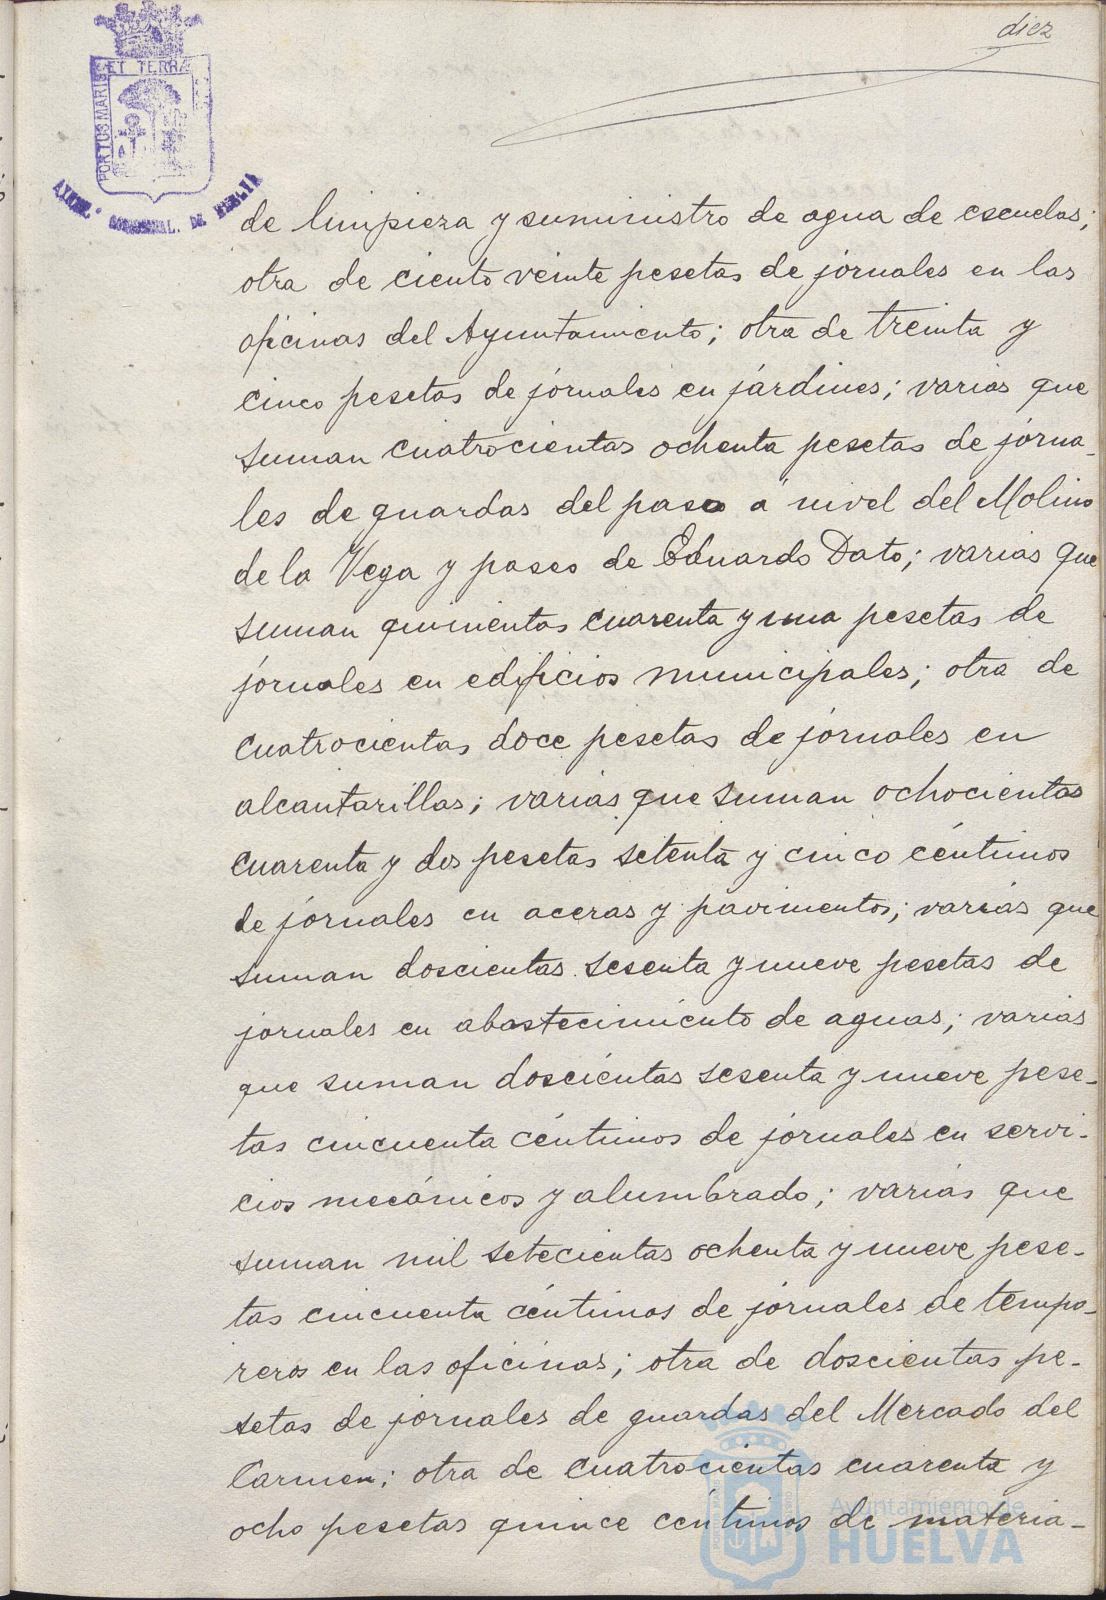 diez
ET TERRA
PORTUS MARIS
DE HUELVA
de limpieza y suministro de agua de escuelas;
otra de ciento veinte pesetas de jornales en las
oficinas del Ayuntamiento; otra de treinta y
cinco pesetas de jornales en jardines; varias que
suman cuatrocientas ochenta pesetas de jorna-
les de guardas del paso a nivel del Molino
de la Vega y paseo de Eduardo Dato; varias que
suman quinientas cuarenta y una pesetas de
jornales en edificios municipales; otra de
cuatrocientas doce pesetas de jornales en
alcantarillas; varias que suman ochocientas
cuarenta y dos pesetas setenta y cinco céntimos
de jornales en aceras y pavimentos; varias que
suman doscientas sesenta y nueve pesetas de
jornales en abastecimiento de aguas; varias
que suman doscientas sesenta y nueve pese-
tas cincuenta céntimos de jornales en servi-
cios mecánicos y alumbrado; varias que
suman mil setecientas ochenta y nueve pese-
tas cincuenta céntimos de jornales de tempo-
reros en las oficinas; otra de doscientas pe-
setas de jornales de guardas del Mercado del
Carmen; otra de cuatrocientas cuarenta y
ocho pesetas quince céntimos de materia-
Ayuntamiento de
HUELVA